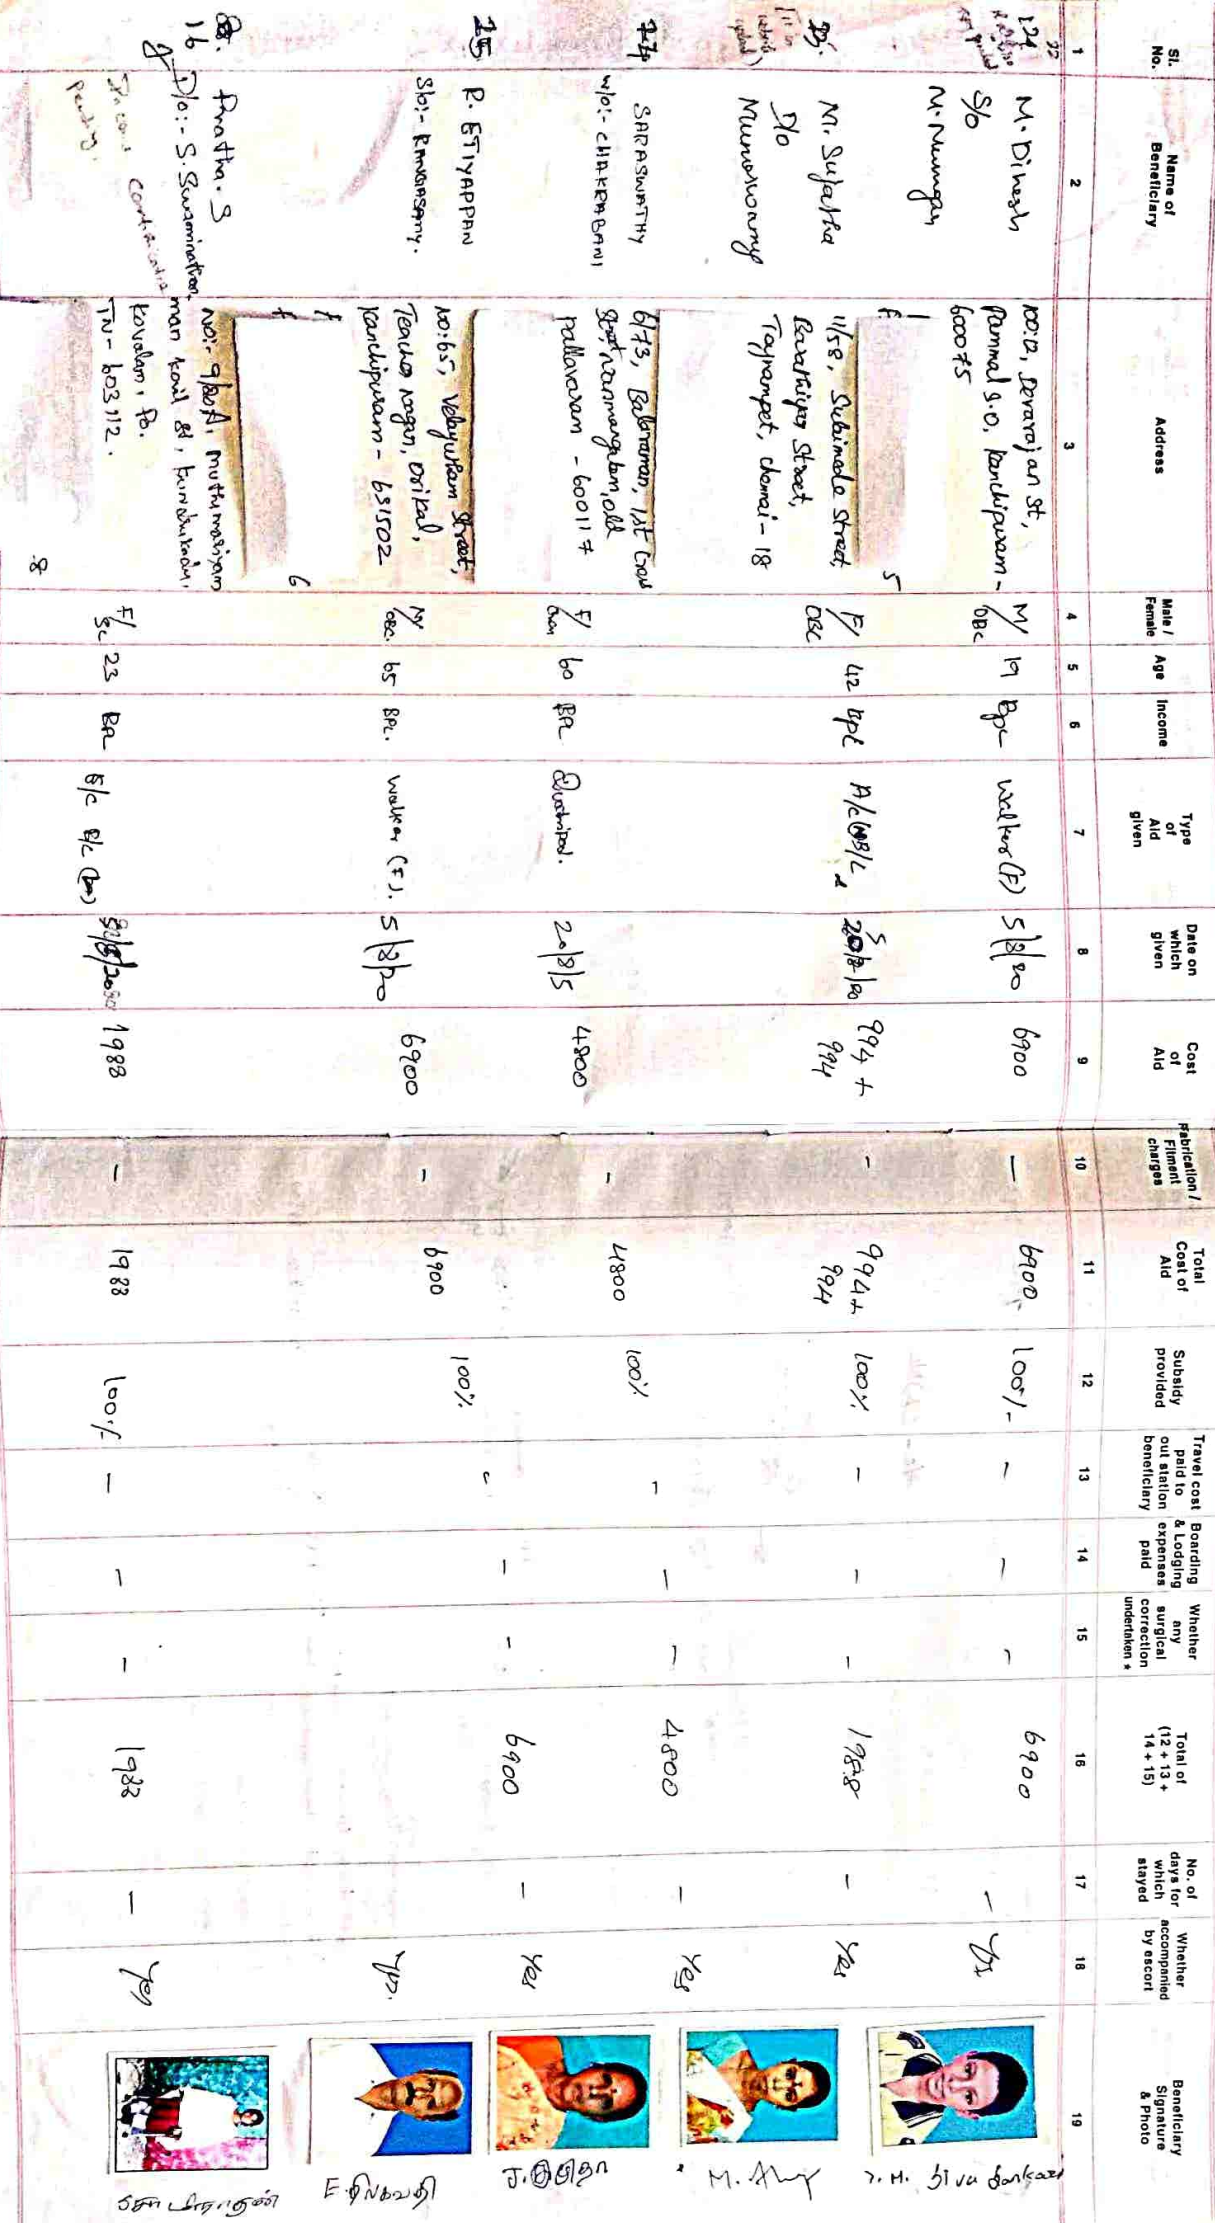 Sl. No.
Name of Beneficiary
Address
Male / Female
Age
Income
Type of Aid given
Date on which given
Cost of Aid
Fabrication / Fitment charges
Total Cost of Aid
Subsidy provided
Travel cost paid to out station beneficiary
Boarding & Lodging expenses paid
Whether any surgical correction undertaken *
Total of (12 + 13 + 14 + 15)
No. of days for which stayed
Whether accompanied by escort
Beneficiary Signature & Photo
1 2 3 4 5 6 7 8 9 10 11 12 13 14 15 16 17 18 19
M. Dinesh
S/o
M. Murugan
Devarajan St,
Pammal S.O, Kanchipuram -
600075
M/ OBC
19
BPL
Walker (F)
5/8/20
6900
—
6900
100%
—
—
—
6900
—
Yes
M. Sujatha
D/o
Munuswamy
11/58, Subimada Street,
Barathiyar Street,
Teynampet, Chennai - 18
5
F/ OBC
42
BPL
994 +
994
-
994 +
994
100%
—
—
—
1988
—
Yes
M.
SARASWATHY
W/O:- CHAKRABANI
6/73, Balaraman, 1st Cross
Street, nanmangalam, old
pallavaram - 600117
F/
60
BPL
20/8/5
4800
-
4800
100%
-
—
—
4800
—
Yes
R. ETIYAPPAN
S/o:- RANGASAMY.
NO:65, Velayutham Street,
Teacher nagar, Orikal,
Kanchipuram - 631502
6
M/ OBC.
65
BPL.
Walker (F).
5/8/20
6900
-
6900
100%
-
-
6900
—
Yes
16
Pratha. S
D/o:- S. Swaminathan
pending.
No:- 9/20A, Muthumariyam
man koil st,
Kovalam, Po.
TN - 603112.
8
F/ SC
23
BPL
1988
-
1988
100%
—
—
—
1988
—
Yes